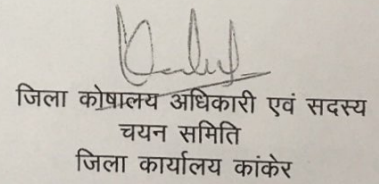 जिला कोषालय अधिकारी एवं सदस्य
चयन समिति
जिला कार्यालय कांकेर